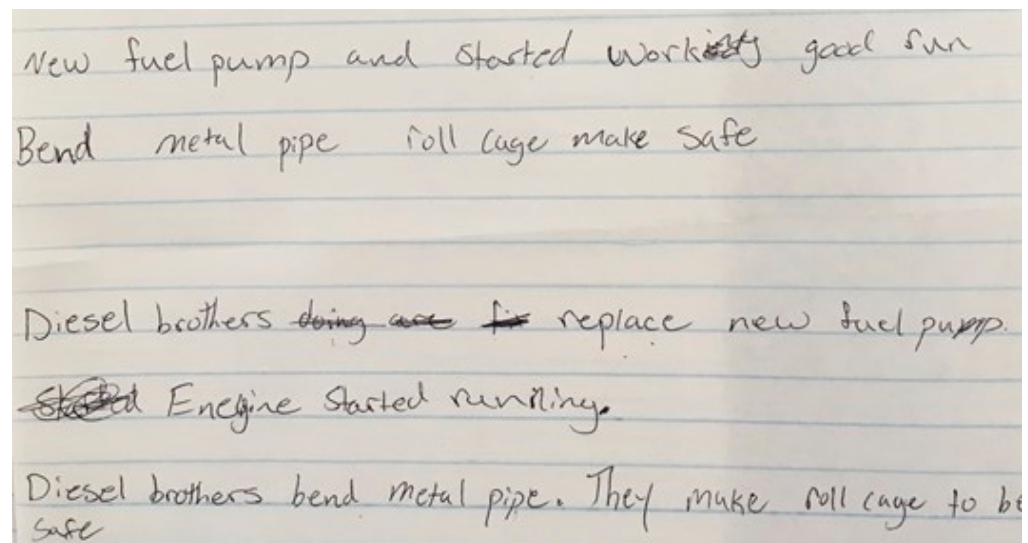 New fuel pump and started working good run
Bend metal pipe roll cage make safe
Diesel brothers doing are fix replace new fuel pump.
Started Enegine started running.
Diesel brothers bend metal pipe. They make roll cage to be
safe